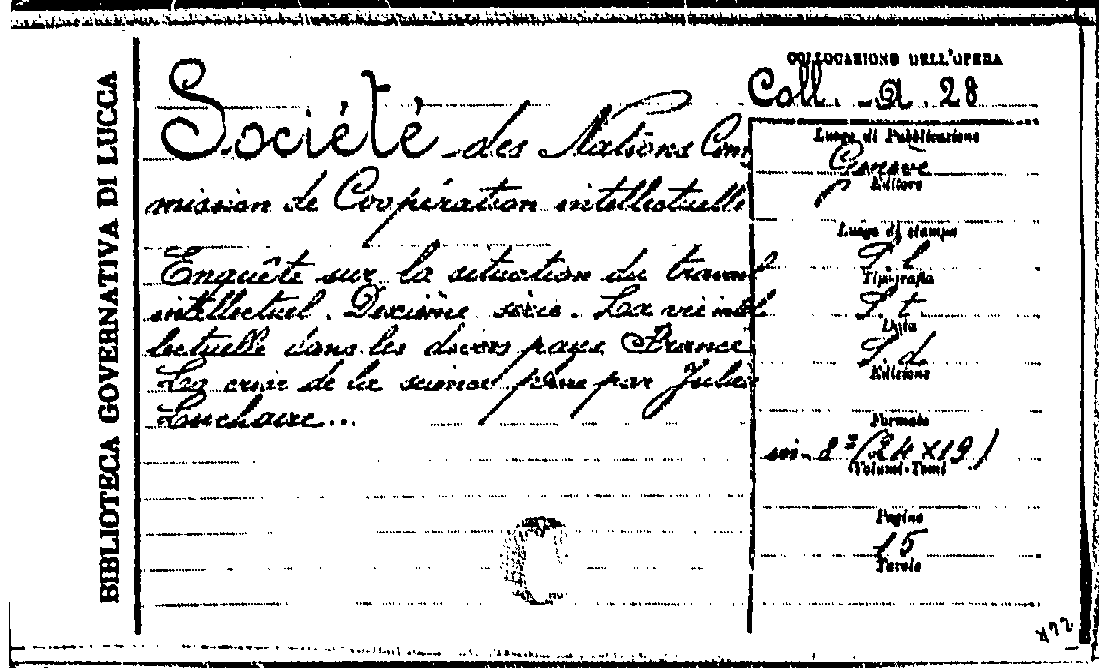 BIBLIOTECA GOVERNATIVA DI LUCCA
COLLOCAZIONE DELL'OPERA
Coll. A. 28
Société des Nations Com
mission de Coopération intellectuelle
Enquête sur la situation du travail
intellectuel. Dexième série. La vie intel
lectuelle dans les divers pays France
La crise de la science pure par Julien
Luchaire...
Luogo di Pubblicazione
Genève
Editore
Luogo di stampa
S. l.
Tipografia
S. t.
Data
S. d.
Edizione
Formato
in-8° (24×19)
Volumi-Tomi
Pagine
15
Tavole
C